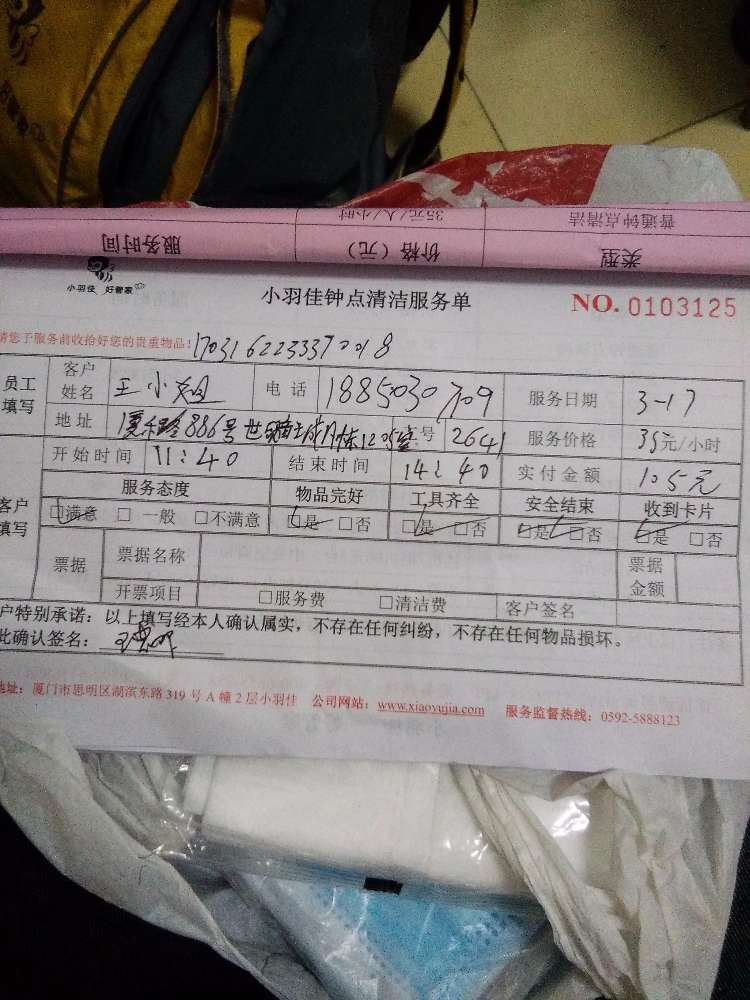 普通钟点清洁 35元/人/小时
类型 价格（元） 服务时间
小羽佳 好管家
小羽佳钟点清洁服务单 NO. 0103125
请您于服务前收拾好您的贵重物品！
员工填写 客户姓名 王小姐 电话 服务日期 3-17
地址 厦禾路886号世 号 2641 服务价格 35元/小时
开始时间 11:40 结束时间 14:40 实付金额 105元
客户填写 服务态度 物品完好 工具齐全 安全结束 收到卡片
□满意 □一般 □不满意 □是 □否 □是 □否 □是 □否 □是 □否
票据 票据名称 票据金额
开票项目 □服务费 □清洁费 客户签名
户特别承诺：以上填写经本人确认属实，不存在任何纠纷，不存在任何物品损坏。
此确认签名：
地址：厦门市思明区湖滨东路319号A幢2层小羽佳 公司网站：www.xiaoyujia.com 服务监督热线：0592-5888123